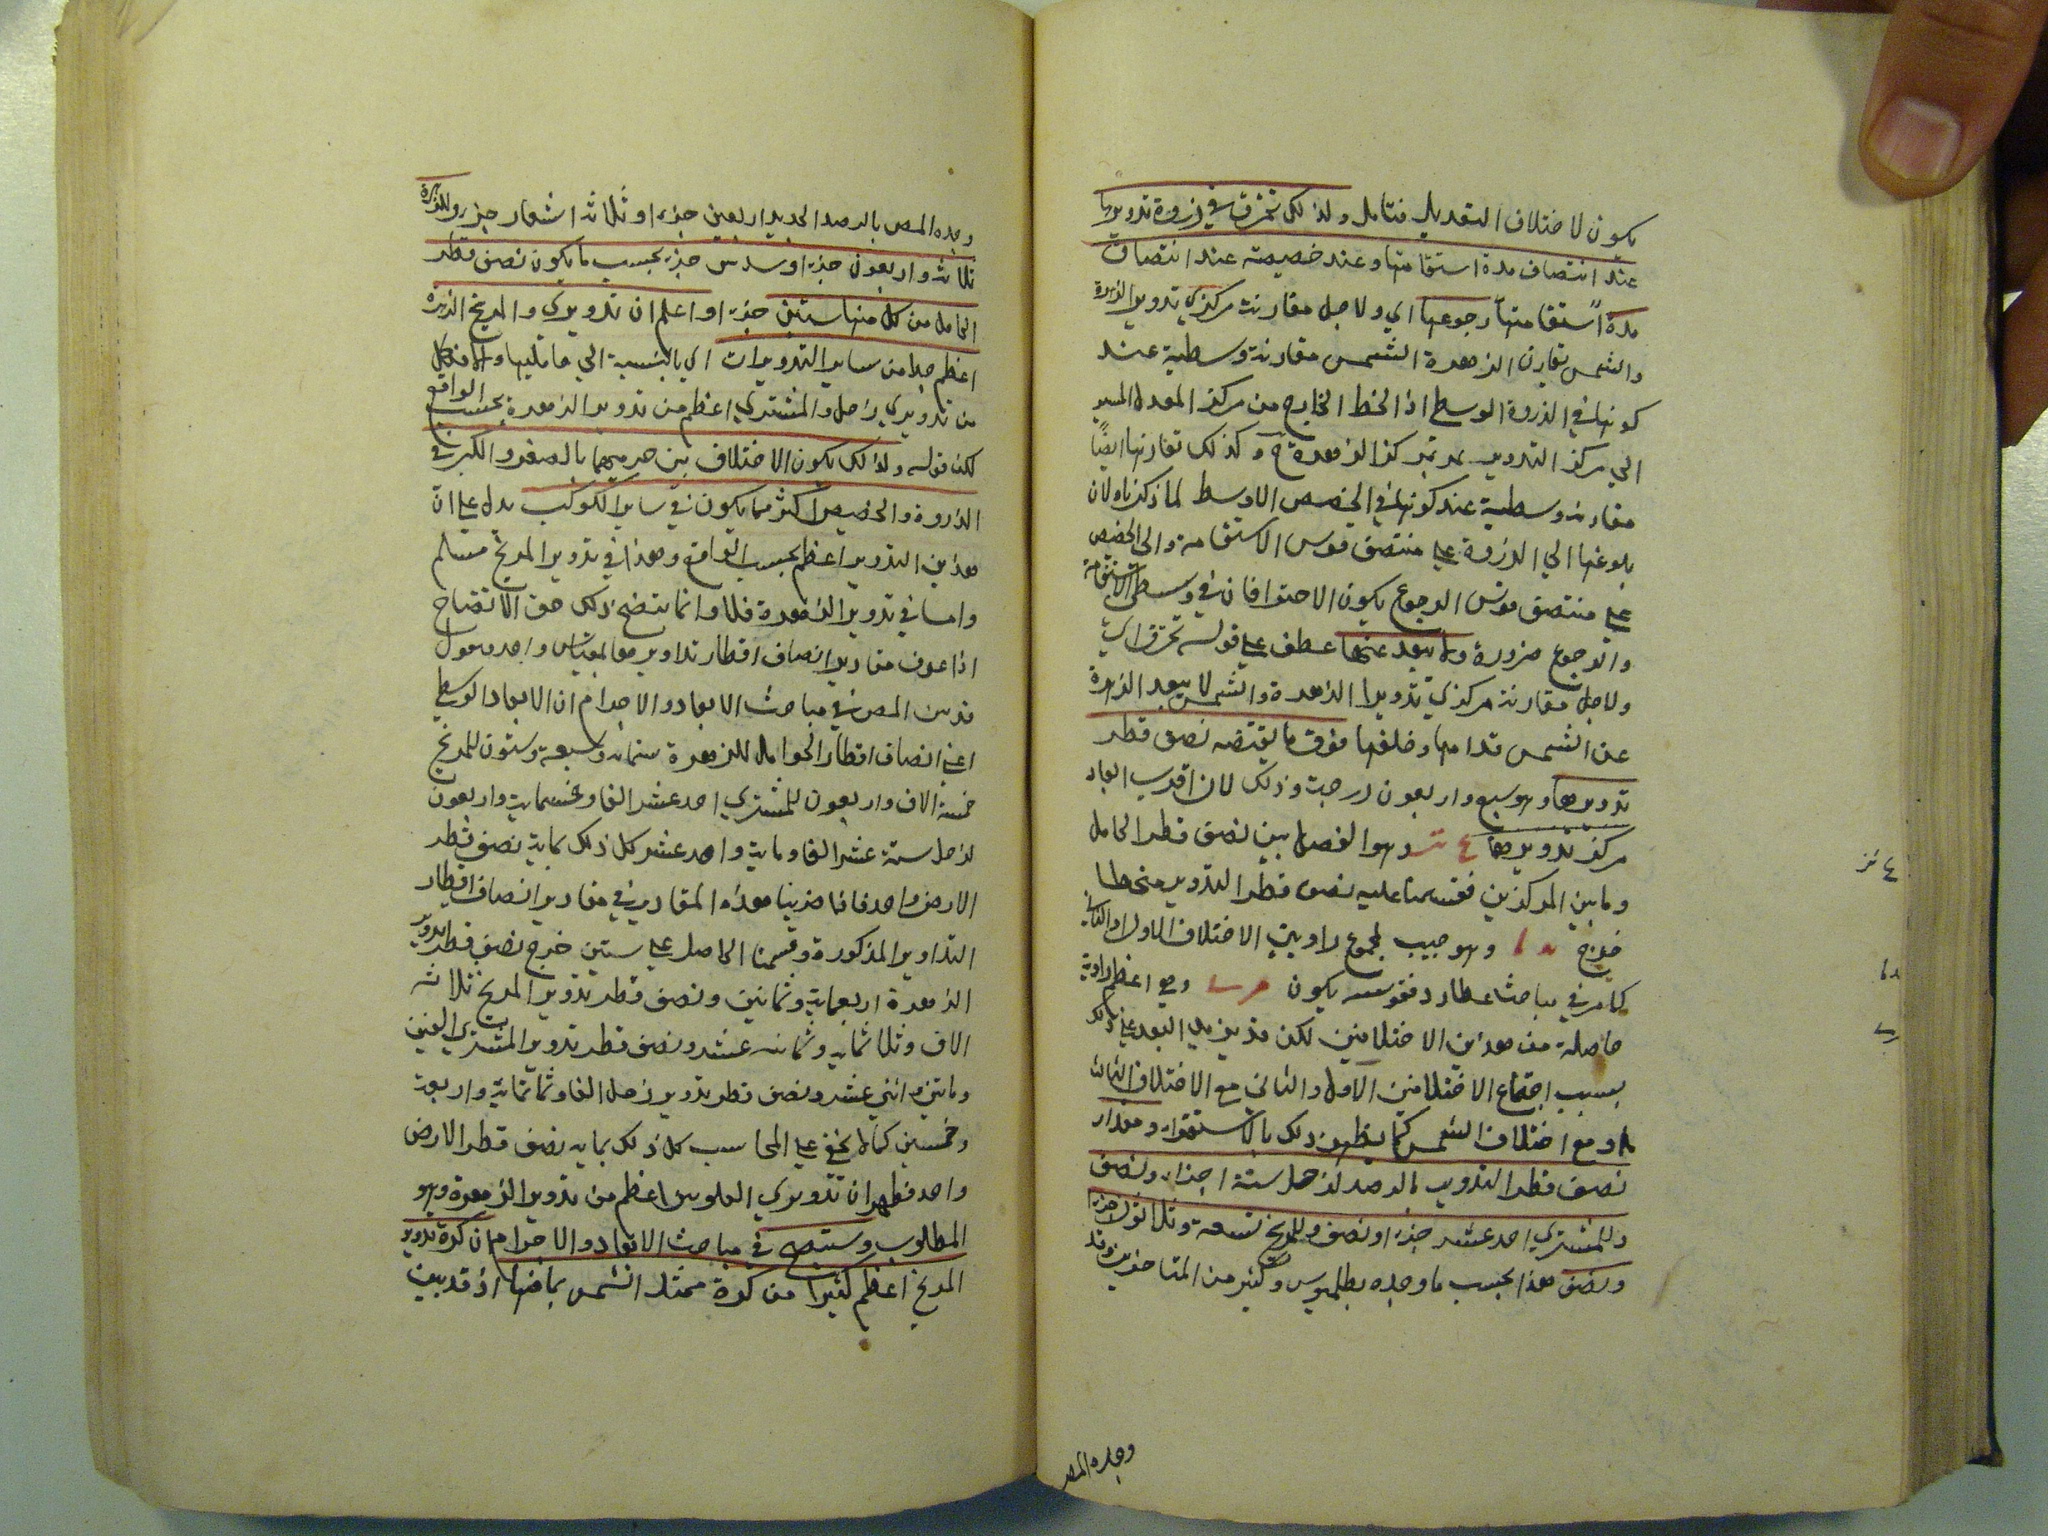 يكون لاختلاف التعديل فتامل ولذلك تحترق في ذروة تدويرها
عند انتصاف مدة استقامتها وعند حضيضه عند انتصاف
مدة استقامتها رجوعها اي ولاجل مقارنة مركزي تدوير الزهرة
والشمس تقارن الزهرة الشمس مقارنة وسطية عند
كونها في الذروة الوسطي اذ الخط الخارج من مركز المعدل المسير
الي مركز التدوير يمر بمركز الزهرة ح وكذلك تقارنها ايضًا
مقارنة وسطية عند كونها في الحضيض الاوسط لما ذكرناه لان
بلوغها الي الذروة علي منتصف قوس الاستقامة والى الحضيض
علي منتصف قوس الرجوع يكون الاحتراقان في وسطي الاستقامة
والرجوع ضرورة ولا يبعد عنها عطف علي قوله تحترق اي
ولاجل مقارنة مركزي تدوير الزهرة والشمس لا يبعد الزهرة
عن الشمس قدامها وخلفها فوق ما يقتضيه نصف قطر
تدويرها وهو سبع واربعون درجة وذلك لان اقرب ابعاد
مركز تدويرها وهو الفضل بين نصف قطر الحامل
وما بين المركزين فقسمنا عليه نصف قطر التدوير منحطا
فخرج وهو جيب لمجموع زاويتي الاختلاف الاول والثاني
كما مر في مباحث عطارد فقوسه يكون وهو اعظم زاوية
حاصلة من هذين الاختلافين لكن قد يزيد البعد علي ذلك
بسبب اجتماع الاختلافين الاول والثاني مع الاختلاف الثالث
او مع اختلاف الشمس كما يظهر ذلك بالاستقراء ومقدار
نصف قطر التدوير بالرصد لزحل ستة اجزاء ونصف
وللمشتري احد عشر جزءا ونصف وللمريخ تسعة وثلاثون جزءا
ونصف هذا بحسب ما وجده بطلميوس وكثير من المتاخرين وقد
وجده المص
وجده المص بالرصد الجديد اربعين جزءا وثلاثة اعشار جزء وللزهرة
ثلاثة واربعون جزءا وسدس جزء بحسب ما يكون نصف قطر
الحامل من كل منها ستين جزءا واعلم ان تدويري والمريخ الزهرة
اعظم جدا من ساير التدويرات اي بالنسبة الي حامليها والا فكل
من تدويري زحل والمشتري اعظم من تدوير الزهرة بحسب الواقع
لكن قوله ولذلك يكون الاختلاف بين جرميهما بالصغر والكبر في
الذروة والحضيض اكثر مما يكون في ساير الكوكب يدل علي ان
هذين التدوير اعظم بحسب الواقع وهذا في تدوير المريخ مسلم
واما في تدوير الزهرة فلا وانما يتضح ذلك حق الاتضاح
اذا عرف مقادير انصاف اقطار تداويرها بمقياس واحد
قد بين المص في مباحث الابعاد والاجرام ان الابعاد الوسطي
اعني انصاف اقطار الحوامل للزهرة ستمائة وسبعة وستون للمريخ
خمسة الاف واربعون للمشتري احد عشر الفا وخمسماية واربعون
لزحل ستة عشر الفا وماية واحد عشر كل ذلك بمابه نصف قطر
الارض واحد فاذا ضربنا هذه المقادير في مقادير انصاف اقطار
التداوير المذكورة وقسمنا الحاصل علي ستين خرج نصف قطر تدوير
الزهرة اربعماية وثمانين ونصف قطر تدوير المريخ ثلاثة
الاف وثلاثماية وثمانية عشر ونصف قطر تدوير المشتري الفين
ومائتين واثني عشر ونصف قطر تدوير زحل الفا وثمانماية واربعة
وخمسين كما لا يخفي علي المحاسب كل ذلك بمابه نصف قطر الارض
واحد فظهر ان تدويري العلويين اعظم من تدوير الزهرة وهو
المطلوب وستتضح في مباحث الابعاد والاجرام ان كرة تدوير
المريخ اعظم كثيرا من كرة ممثل الشمس بما فيها اذ قد بين